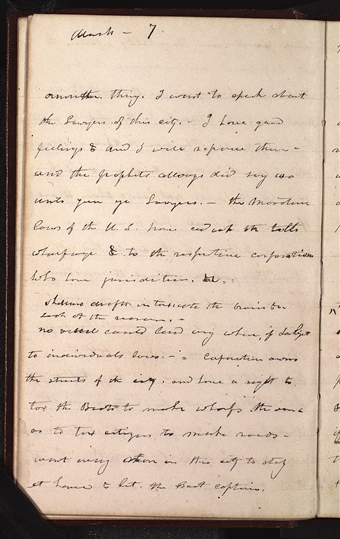 March - 7.
another thing. I want to speak about
the Lawyers of this city. - I have good
feelings & and I will reprove them -
and the prophets always did say wo
unto you ye Lawyers. - the Maratime
laws of the U. S. have ceded up the tolls
wharfage & to the respective corporations
who have jurisdiction.
the brain
each of the
no vessel could land any where, if
to individuals laws. - Corporation owns
the streets of the city. and have a right to
tax the Boats to make wharfs the same
as to tax citizens to make roads -
want every man in this city to stay
at home & let the Boat captains.